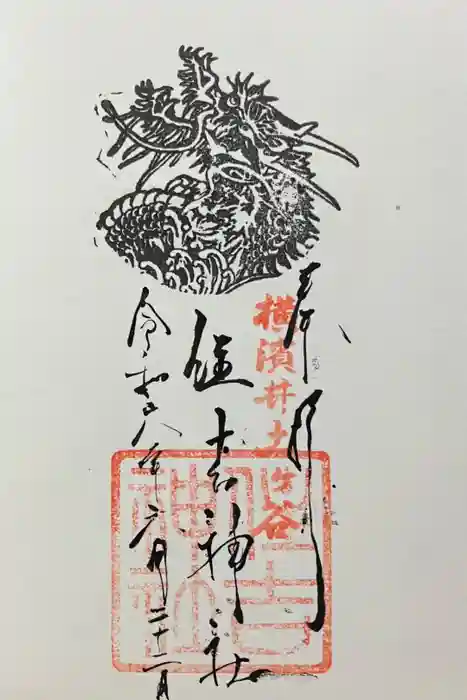 奉拝
横濱井土ヶ谷
住吉神社
令和六年六月二十二日
住吉
神社